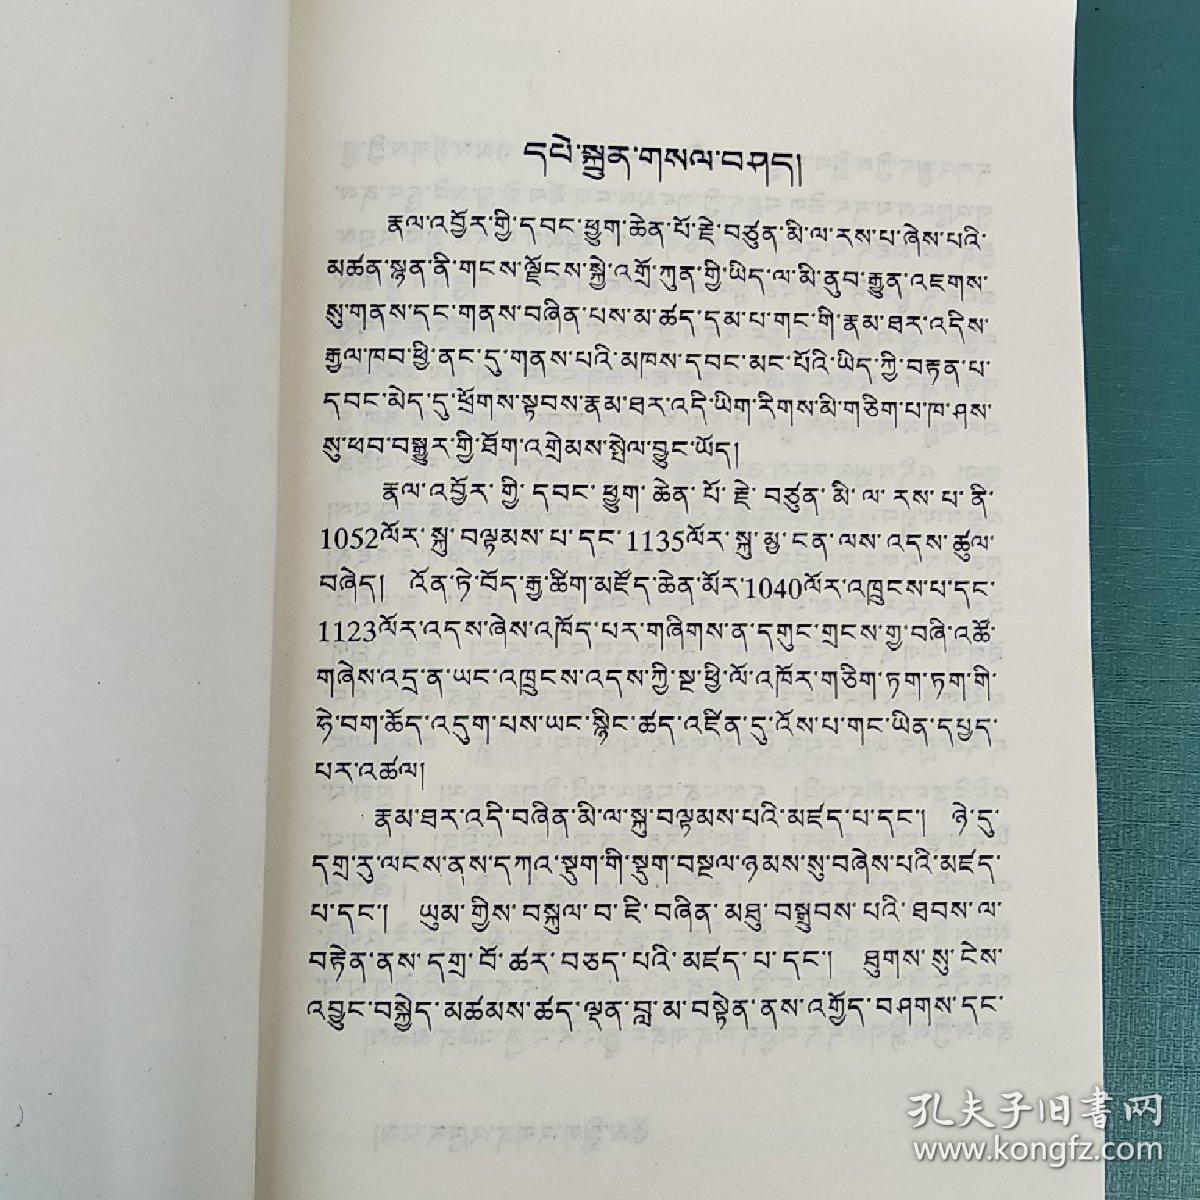 དཔེ་སྐྲུན་གསལ་བཤད།
རྣལ་འབྱོར་གྱི་དབང་ཕྱུག་ཆེན་པོ་རྗེ་བཙུན་མི་ལ་རས་པ་ཞེས་པའི་
མཚན་སྙན་ནི་གངས་ལྗོངས་སྐྱེ་འགྲོ་ཀུན་གྱི་ཡིད་ལ་མི་ནུབ་རྒྱུན་འཇགས་
སུ་གནས་དང་གནས་བཞིན་པས་མ་ཚད་དམ་པ་གང་གི་རྣམ་ཐར་འདིས་
རྒྱལ་ཁབ་ཕྱི་ནང་དུ་གནས་པའི་མཁས་དབང་མང་པོའི་ཡིད་ཀྱི་བརྟན་པ་
དབང་མེད་དུ་ཕྲོགས་སྟབས་རྣམ་ཐར་འདི་ཡིག་རིགས་མི་གཅིག་པ་ཁ་ཤས་
སུ་ཕབ་བསྒྱུར་གྱི་ཐོག་འགྲེམས་སྤེལ་བྱུང་ཡོད།
རྣལ་འབྱོར་གྱི་དབང་ཕྱུག་ཆེན་པོ་རྗེ་བཙུན་མི་ལ་རས་པ་ནི་
1052ལོར་སྐུ་བལྟམས་པ་དང་1135ལོར་སྐུ་མྱ་ངན་ལས་འདས་ཚུལ་
བཞེད། འོན་ཏེ་བོད་རྒྱ་ཚིག་མཛོད་ཆེན་མོར་1040ལོར་འཁྲུངས་པ་དང་
1123ལོར་འདས་ཞེས་འཁོད་པར་གཞིགས་ན་དགུང་གྲངས་གྱ་བཞི་འཚོ་
གཞེས་འདྲ་ན་ཡང་འཁྲུངས་འདས་ཀྱི་སྔ་ཕྱི་ལོ་འཁོར་གཅིག་ཏག་ཏག་གི་
ཧེ་བག་ཆོད་འདུག་པས་ཡང་སྙིང་ཚད་འཛིན་དུ་འོས་པ་གང་ཡིན་དཔྱད་
པར་འཚལ།
རྣམ་ཐར་འདི་བཞིན་མི་ལ་སྐུ་བལྟམས་པའི་མཛད་པ་དང་། ཉེ་དུ་
དགྲ་རུ་ལངས་ནས་དཀའ་སྡུག་གི་སྡུག་བསྔལ་ཉམས་སུ་བཞེས་པའི་མཛད་
པ་དང་། ཡུམ་གྱིས་བསྐུལ་བ་ཇི་བཞིན་མཐུ་བསྒྲུབས་པའི་ཐབས་ལ་
བརྟེན་ནས་དགྲ་བོ་ཚར་བཅད་པའི་མཛད་པ་དང་། ཐུགས་སུ་ངེས་
འབྱུང་བསྐྱེད་མཚམས་ཚད་ལྡན་བླ་མ་བསྟེན་ནས་འགྱོད་བཤགས་དང་
孔夫子旧书网
www.kongfz.com